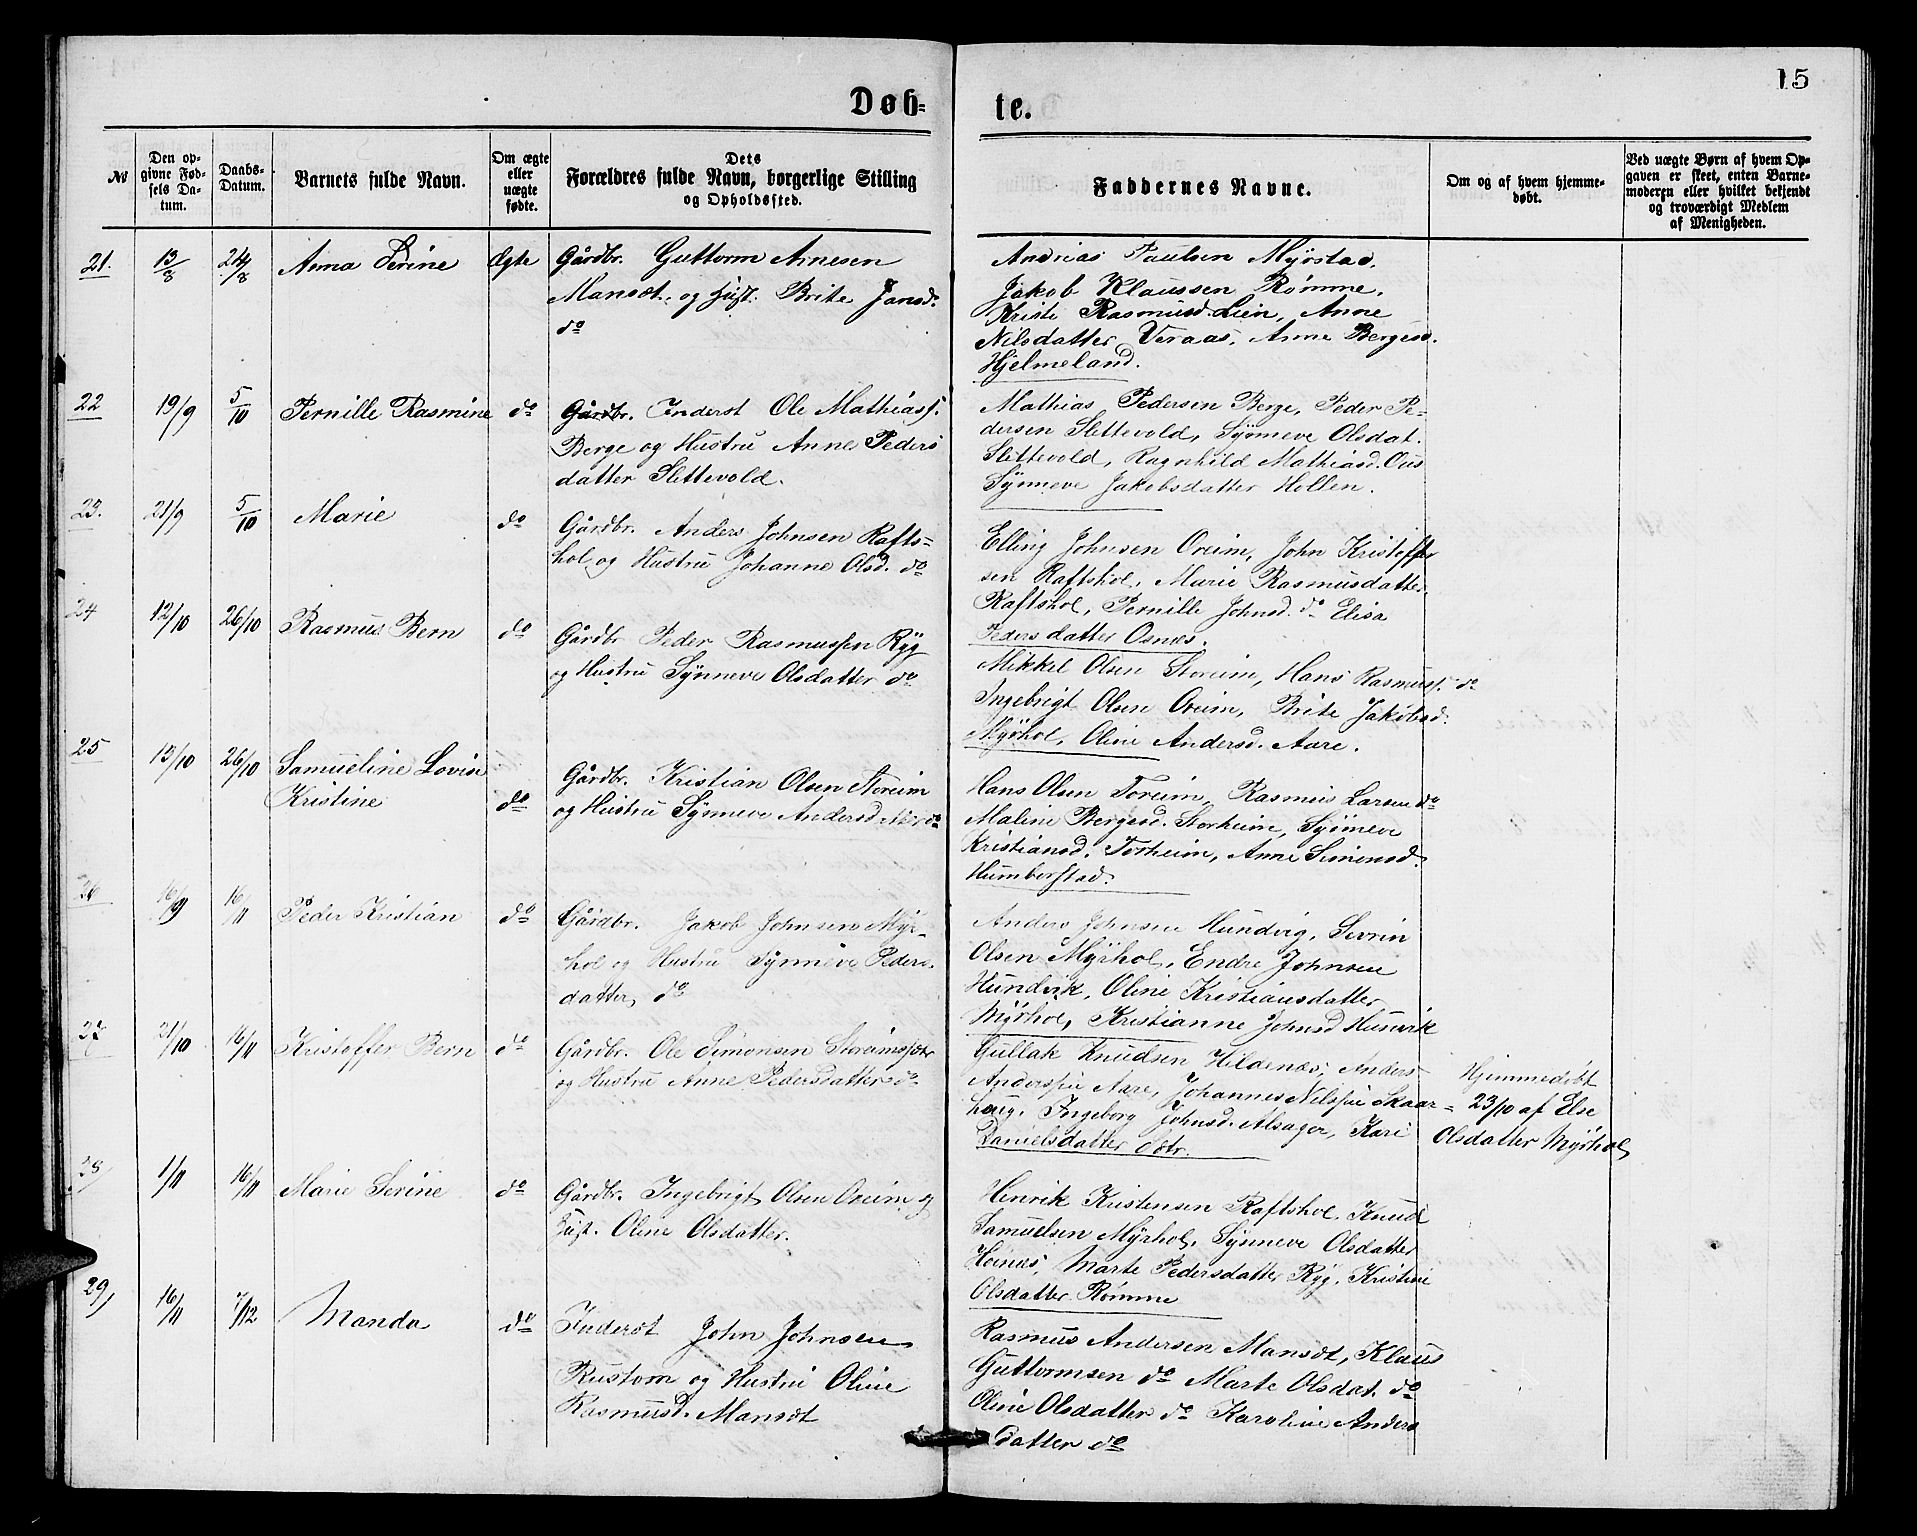 15
Døb-
te.
№
Den op-
givne Fød-
sels Da-
tum.
Daabs-
Datum.
Barnets fulde Navn.
Om ægte
eller
uægte
fødte.
Dets
Forældres fulde Navn, borgerlige Stilling
og Opholdssted.
Faddernes Navne.
Om og af hvem hjemme-
døbt.
Ved uægte Børn af hvem Op-
gaven er skeet, enten Barne-
moderen eller hvilket bekjendt
og troværdigt Medlem
af Menigheden.
21. 13/8 24/8 Anna Serine Ægte
Gårdbr. Guttorm Arnesen
Mansæt, og Hust. Brite Jansd.
do
Andrias Paulsen Myrstad,
Jakob Klaussen Rømme,
Kristi Rasmusd. Lien, Anne
Nilsdatter Veraas, Anne Bergesd.
Hjelmeland.
22 19/9 5/10 Pernille Rasmine do
Gårdbr. Inderst Ole Mathiass.
Berge og Hustru Anne Peders
datter Slettevold.
Mathias Pedersen Berge, Peder Pe-
dersen Slettevold, Synneve Olsdat.
Slettevold, Ragnhild Mathiasd. Ous
Synneve Jakobsdatter Hollen.
23. 21/9 5/10 Marie do
Gårdbr. Anders Johnsen Rafts-
hol og Hustru Johanne Olsd. do
Elling Johnsen Oreim, John Kristoffer
sen Raftshol, Marie Rasmusdatter
Raftshol, Pernille Johnsd. do Elisa
Pedersdatter Osnes.
24 12/10 26/10 Rasmus Bern do
Gårdbr Peder Rasmussen Ryg
og Hustru Synneve Olsdatter do
Mikkel Olsen Storeim, Hans Rasmuss. do
Ingebrigt Olsen Oreim, Brite Jakobsd.
Myrhol, Oline Andersd. Aare.
25 13/10 26/10 Samueline Lovise
Kristine do
Gårdbr. Kristian Olsen Storeim
og Hustru Synneve Andersd. do
Hans Olsen Toreim, Rasmus Larsen do
Maline Bergesd. Storheim, Synneve
Kristiansd. Torheim, Anne Simonsd.
Humberstad.
26 16/9 16/11 Peder Kristian do
Gårdbr. Jakob Johnsen Myr-
hol og Hustru Synneve Peders-
datter, do
Anders Johnsen Hundvig, Sevrin
Olsen Myrhol, Endre Johnsen
Hundvik, Oline Kristiansdatter
Myrhol, Kristianne Johnsd Hunvik
27 21/10 16/11 Kristoffer Bern do
Gårdbr. Ole Simonsen Storeimssæter
og Hustru Anne Pedersdatter do
Gullak Knudsen Hildenæs, Anders
Anderssen Aare, Johannes Nilssen Skaar-
haug, Ingeborg Johnsd. Alsager, Kari
Danielsdatter
Hjemmedøbt
23/10 af Else
Olsdatter Myrhol
28, 1/11 16/11 Marie Serine do
Gårdbr. Ingebrigt Olsen Oreim og
Hust. Oline Olsdatter.
Henrik Kristensen Raftshol, Knud
Samuelsen Myrhol, Synneve Olsdatter
Heinæs, Marte Pedersdatter Ryg, Kristine
Olsdatter Rømme
29, 16/11 7/12 Manda do
Inderst John Johnsen
Rustom og Hustru Oline
Rasmusd. Mansæt
Rasmus Andersen Mansæt, Klaus
Guttormsen do Marte Olsdat. do
Oline Olsdatter do Karoline Anders
datter do